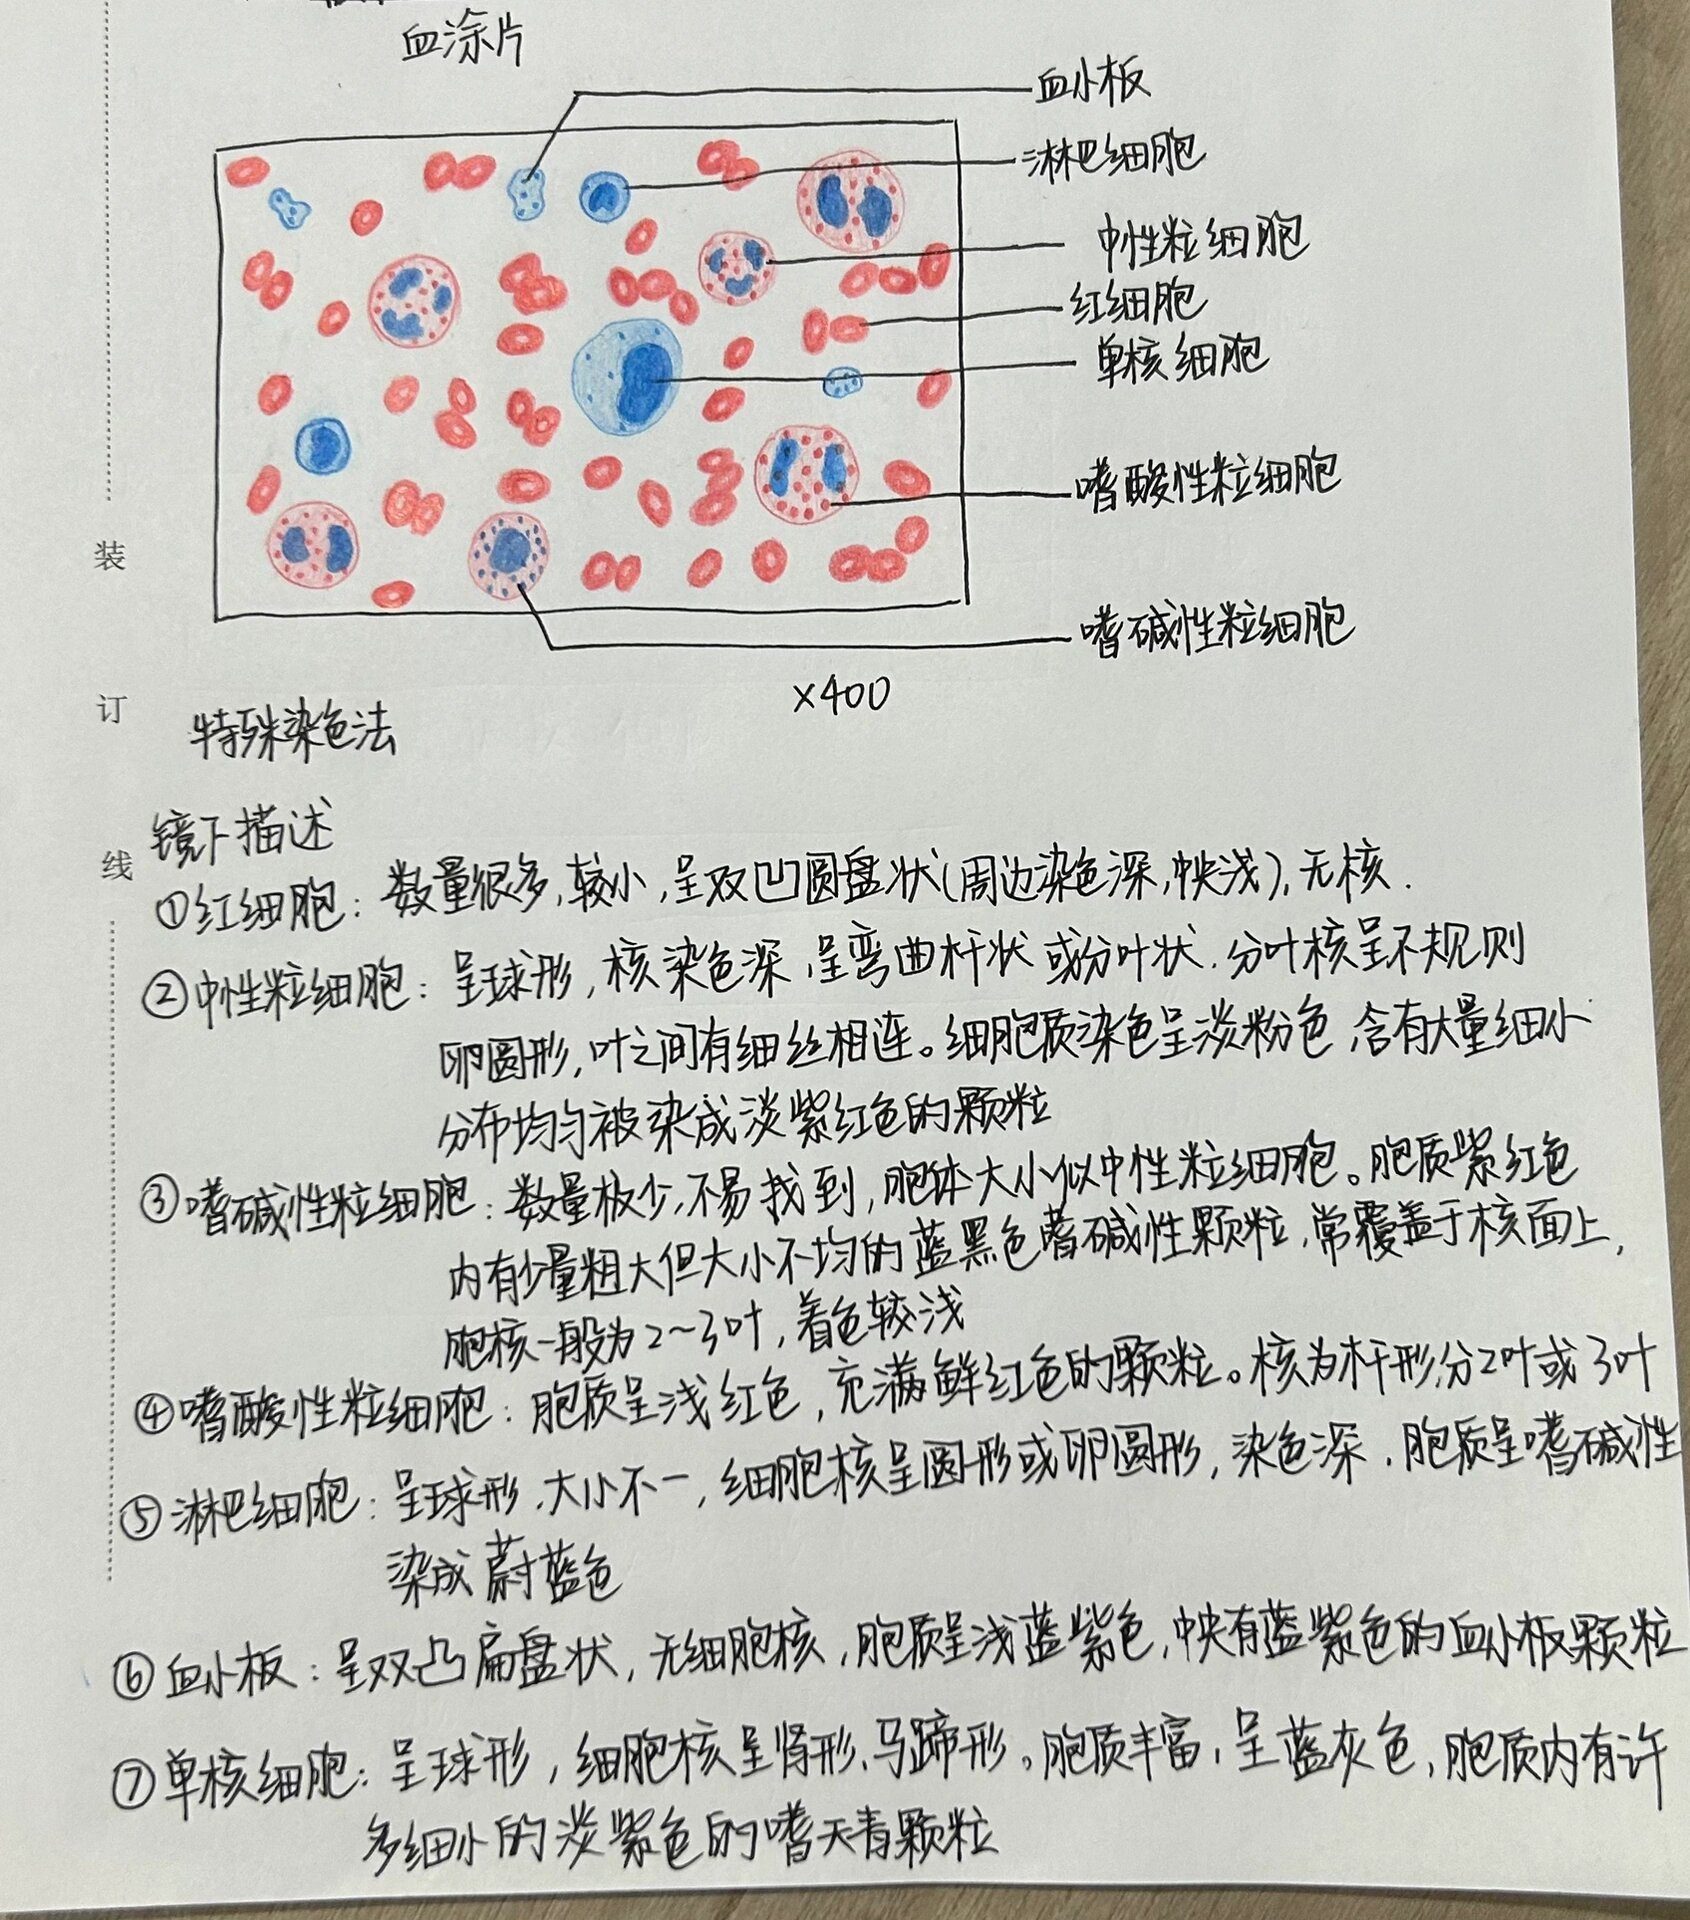 血涂片
血小板
淋巴细胞
中性粒细胞
红细胞
单核细胞
嗜酸性粒细胞
嗜碱性粒细胞
×400
装
订
线
特殊染色法
镜下描述
①红细胞：数量很多,较小,呈双凹圆盘状(周边染色深,中央浅),无核.
②中性粒细胞：呈球形,核染色深,呈弯曲杆状或分叶状.分叶核呈不规则
卵圆形,叶之间有细丝相连。细胞质染色呈淡粉色,含有大量细小
分布均匀被染成淡紫红色的颗粒
③嗜碱性粒细胞：数量极少,不易找到,胞体大小似中性粒细胞。胞质紫红色
内有少量粗大但大小不均的蓝黑色嗜碱性颗粒,常覆盖于核面上,
胞核一般为2~3叶,着色较浅
④嗜酸性粒细胞：胞质呈浅红色,充满鲜红色的颗粒。核为杆形,分2叶或3叶
⑤淋巴细胞：呈球形.大小不一,细胞核呈圆形或卵圆形,染色深.胞质呈嗜碱性
染成蔚蓝色
⑥血小板：呈双凸扁盘状,无细胞核,胞质呈浅蓝紫色,中央有蓝紫色的血小板颗粒
⑦单核细胞：呈球形,细胞核呈肾形、马蹄形。胞质丰富,呈蓝灰色,胞质内有许
多细小的淡紫色的嗜天青颗粒